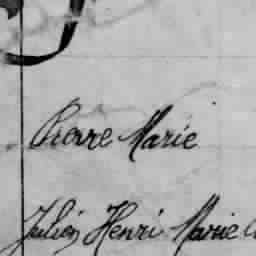 Pierre Marie
Julien Henri Marie